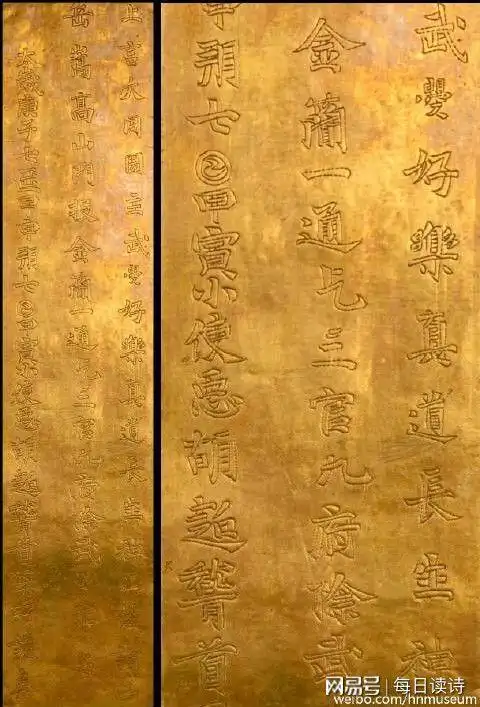 上言大周圀主武曌好樂真道長生神
岳嵩高山門投金簡一通乞三官九府除武
太歲庚子七𠥱甲申朔七𡆠甲寅小使𢘑胡超稽首
武曌好樂真道長生神
金簡一通乞三官九府除武
申朔七𡆠甲寅小使𢘑胡超稽首
网易号 | 每日读诗
weibo.com/hnmuseum